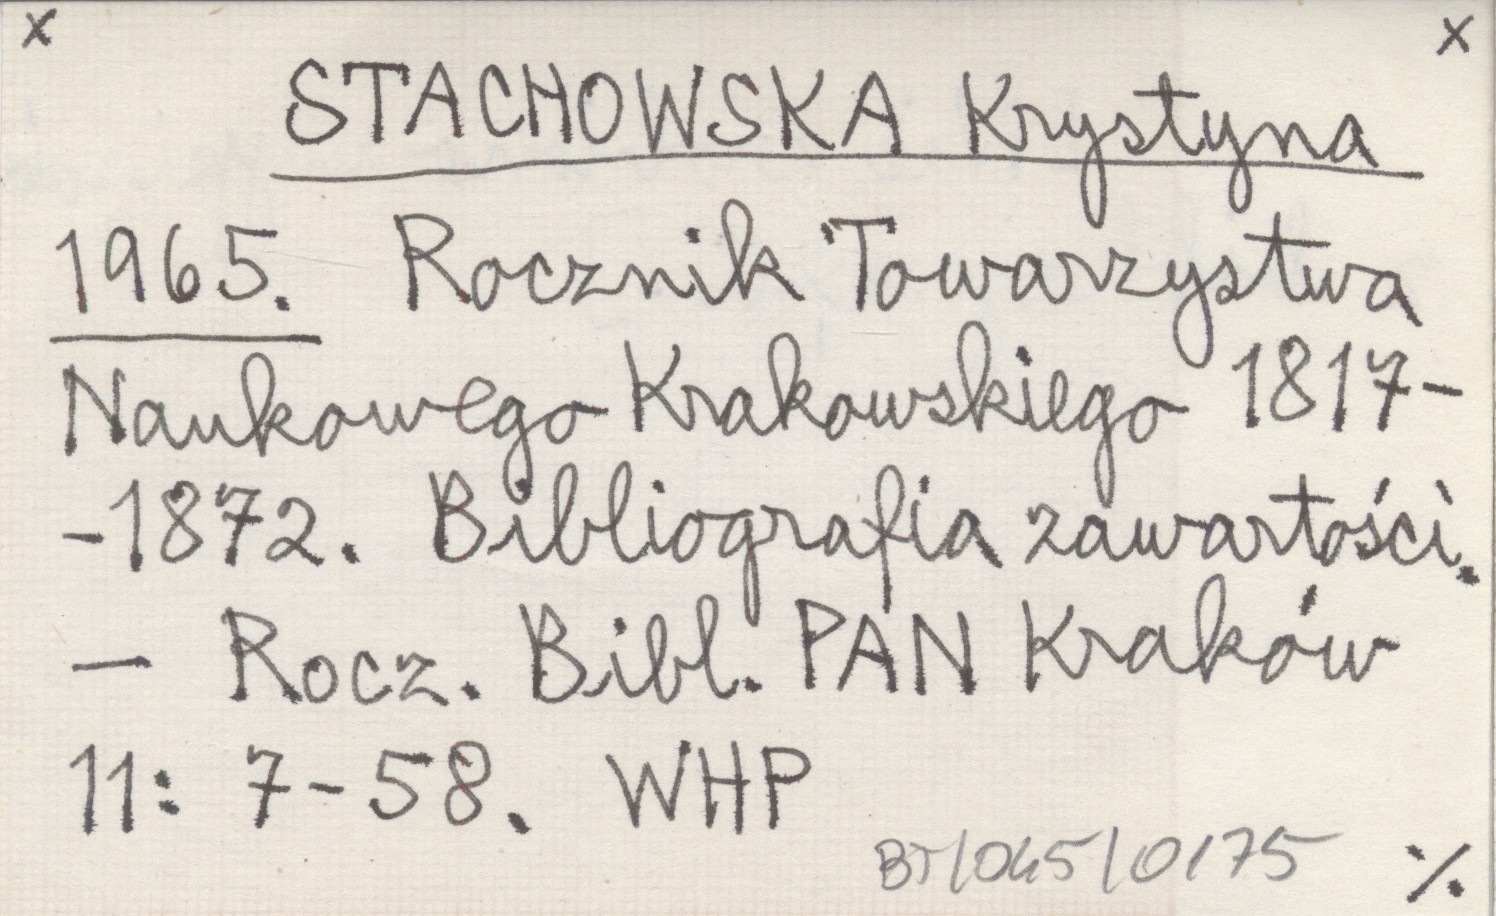 x x
STACHOWSKA Krystyna
1965. Rocznik Towarzystwa
Naukowego Krakowskiego 1817-
-1872. Bibliografia zawartości.
— Rocz. Bibl. PAN Kraków
11: 7-58. WHP
BT/045/0175 ·/.